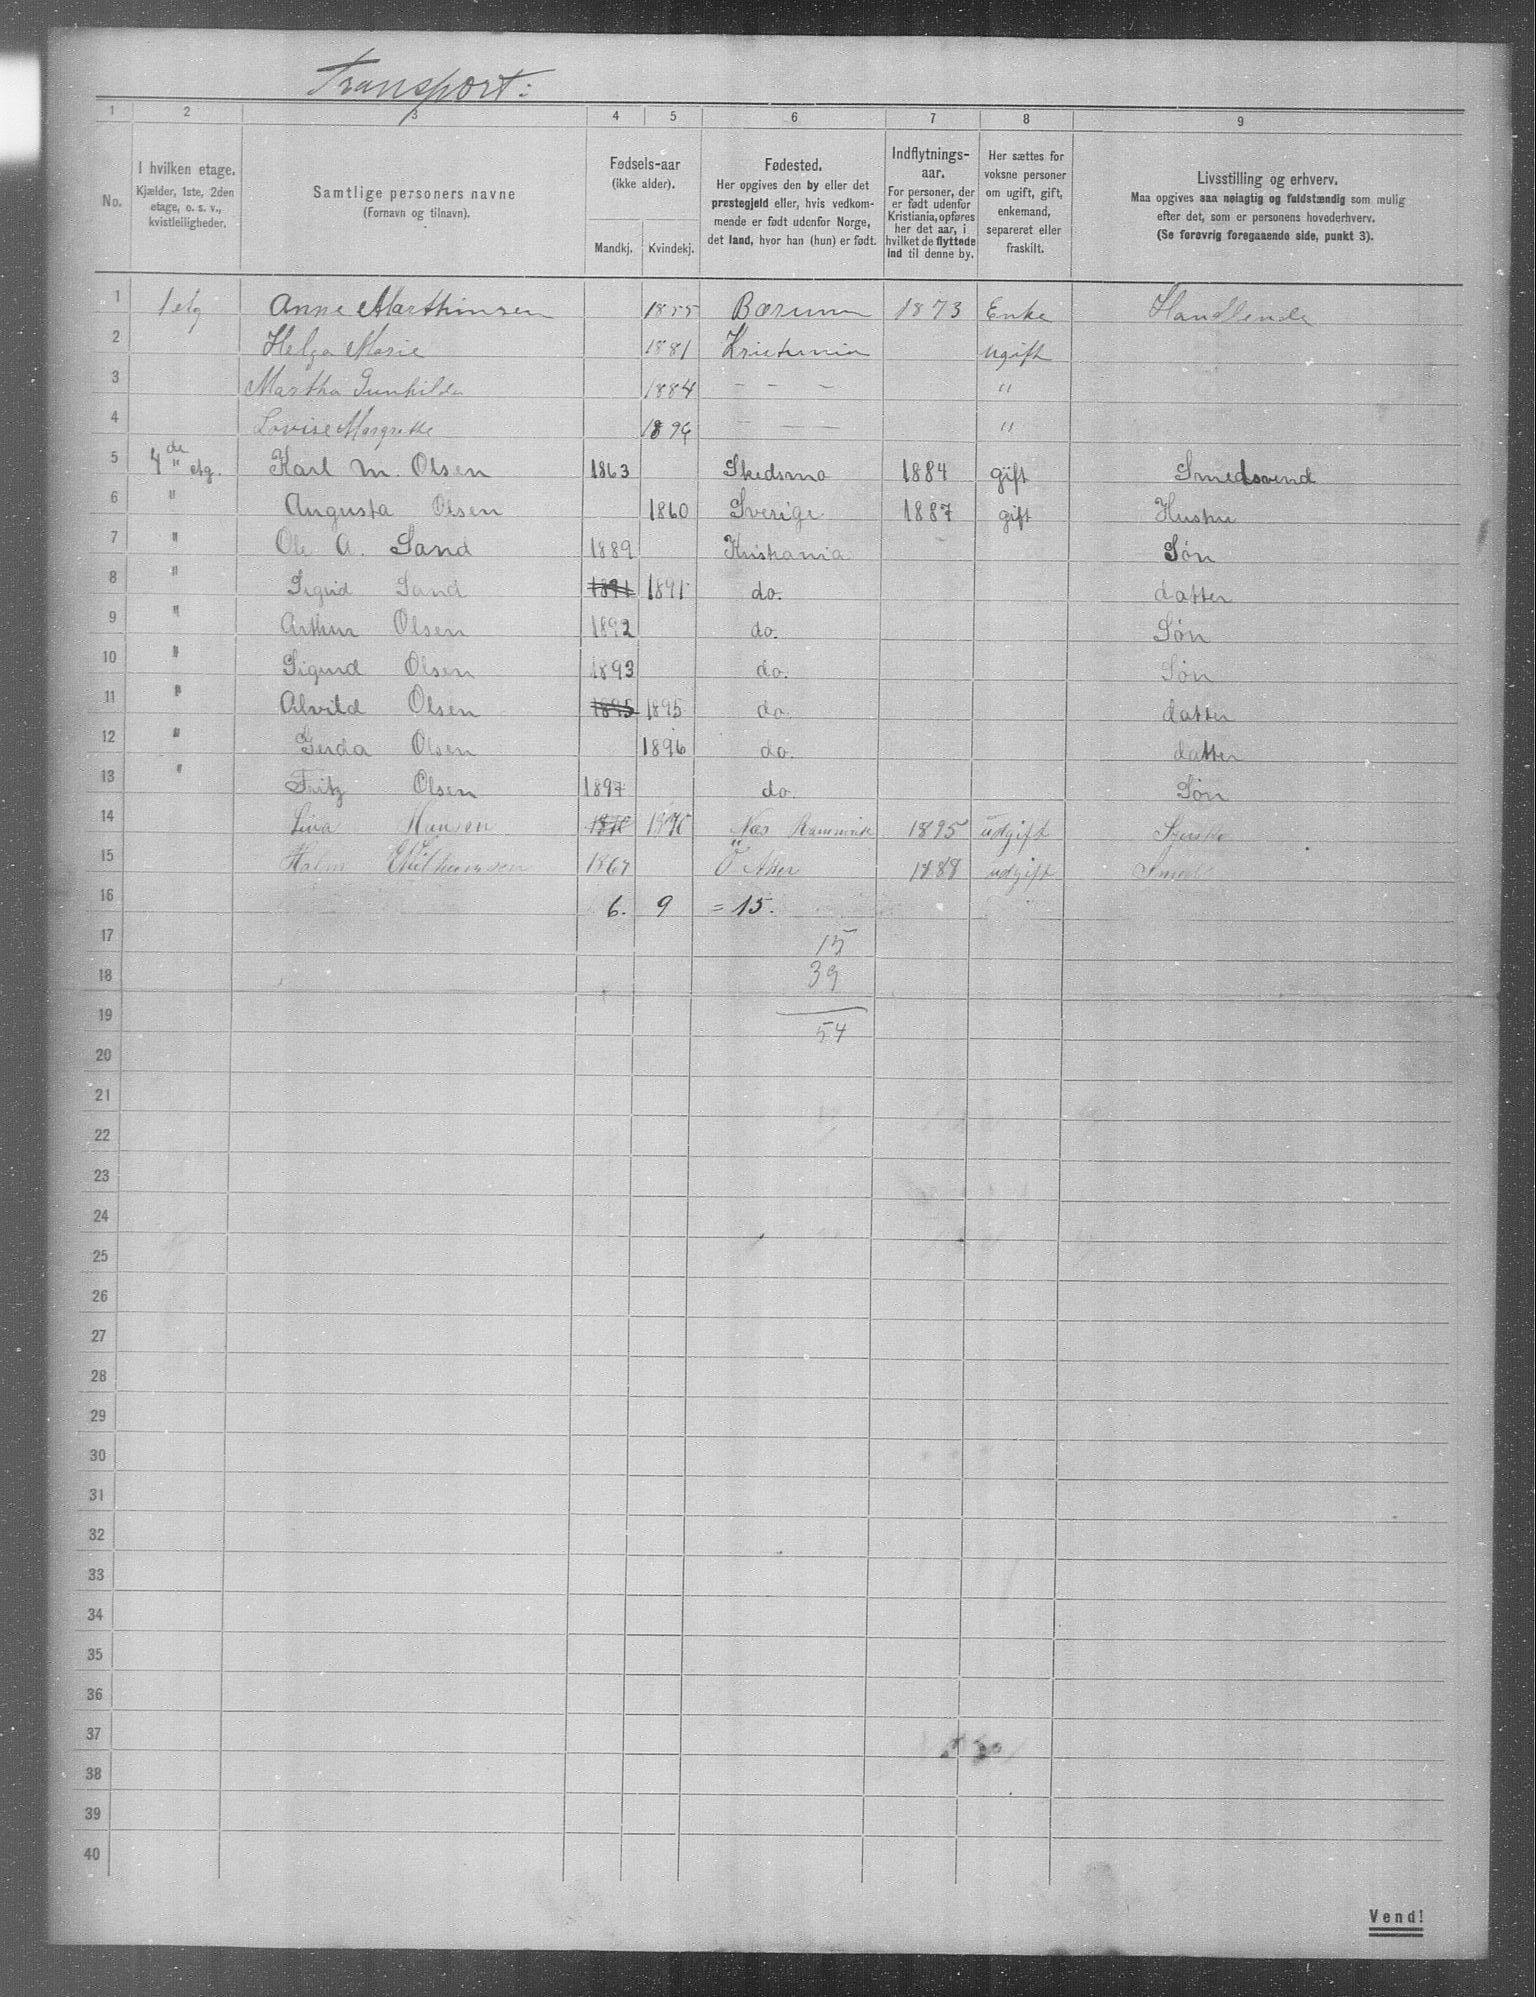 Transport:
1 2 3 4 5 6 7 8 9
No.
I hvilken etage.
Kjælder, 1ste, 2den
etage, o. s. v.,
kvistleiligheder.
Samtlige personers navne
(Fornavn og tilnavn).
Fødsels-aar
(ikke alder).
Mandkj. Kvindekj.
Fødested.
Her opgives den by eller det
prestegjeld eller, hvis vedkom-
mende er født udenfor Norge,
det land, hvor han (hun) er født.
Indflytnings-
aar.
For personer, der
er født udenfor
Kristiania, opføres
her det aar, i
hvilket de flyttede
ind til denne by.
Her sættes for
voksne personer
om ugift, gift,
enkemand,
separeret eller
fraskilt.
Livsstilling og erhverv.
Maa opgives saa nøiagtig og fuldstændig som mulig
efter det, som er personens hovederhverv.
(Se forøvrig foregaaende side, punkt 3).
1 1 etg Anne Marthinsen 1855 Bærum 1873 Enke Handlende
2 Helga Marie 1881 Kristiania ugift
3 Martha Gunhilda 1884 – – – "
4 Lovise Margrethe – – – "
5 4de " etg. Karl M. Olsen 1863 Skedsmo 1884 gift Smedsvend
6 " Augusta Olsen 1860 Sverige 1887 gift Hustru
7 " Ole A. Sand 1889 Kristiania Søn
8 " Sigrid Sand 1891 1891 do. datter
9 " Arthur Olsen 1892 do. Søn
10 " Sigurd Olsen 1893 do. Søn
11 " Alvild Olsen 1895 1895 do. datter
12 " Gerda Olsen 1896 do. datter
13 " Fritz Olsen 1897 do. Søn
14 Lina Hansen Næs Romerike 1895 udgift Syerske
15 1867 Ø Aker 1888 udgift Smed
16 6. 9 = 15.
17 15
18 39
19 54
20
21
22
23
24
25
26
27
28
29
30
31
32
33
34
35
36
37
38
39
40
Vend!